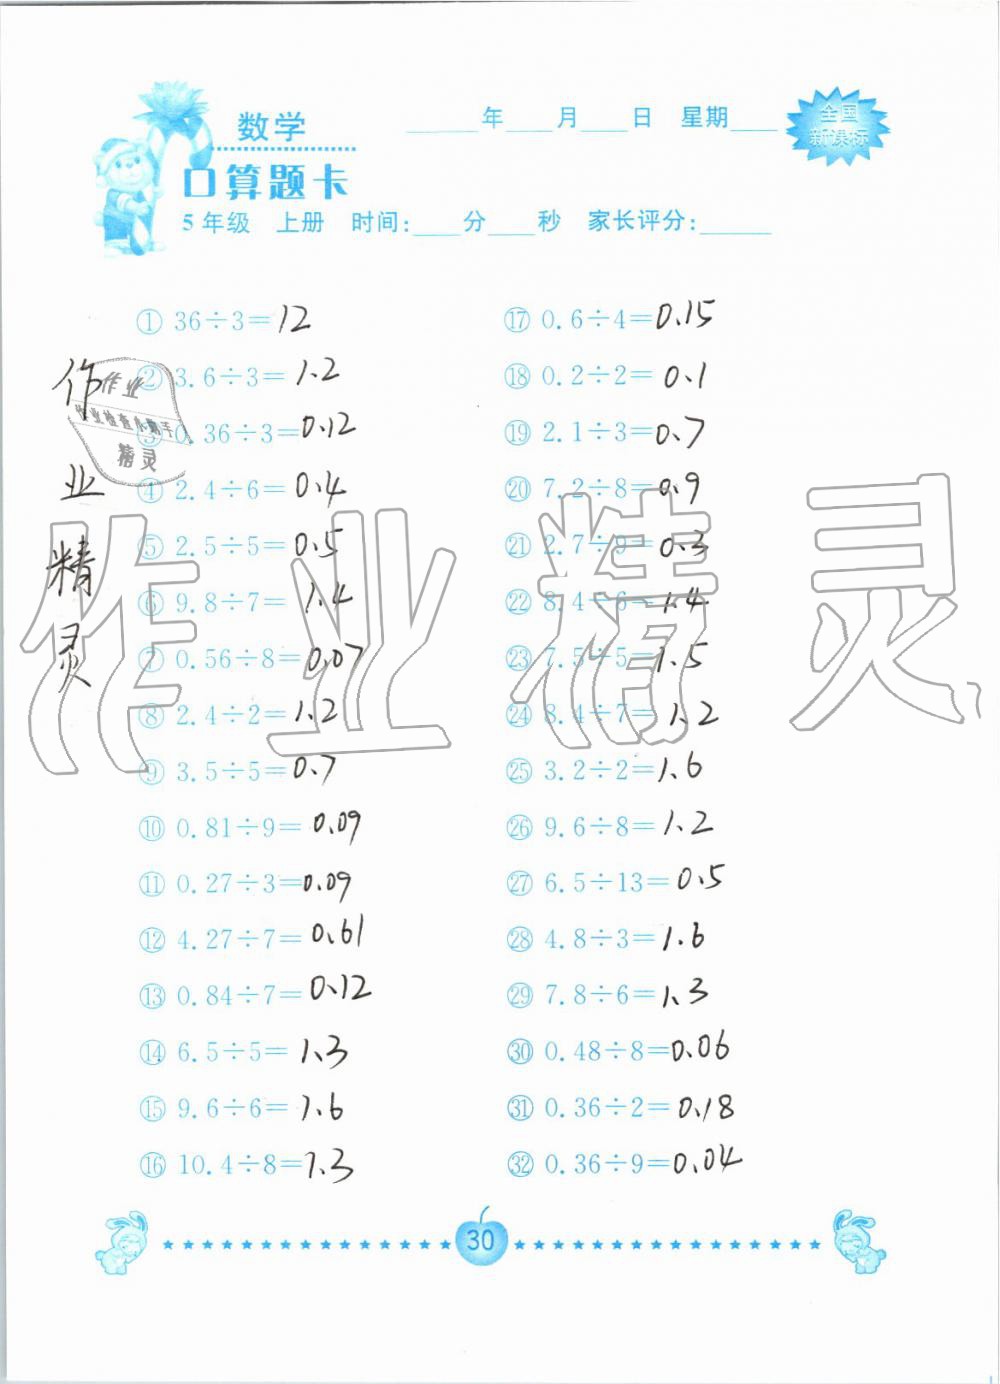 数学
____年____月____日 星期____
全国
新课标
口算题卡
5年级 上册 时间:____分____秒 家长评分:______
① 36÷3=12
② 3.6÷3=1.2
③ 0.36÷3=0.12
④ 2.4÷6=0.4
⑤ 2.5÷5=0.5
⑥ 9.8÷7=1.4
⑦ 0.56÷8=0.07
⑧ 2.4÷2=1.2
⑨ 3.5÷5=0.7
⑩ 0.81÷9=0.09
⑪ 0.27÷3=0.09
⑫ 4.27÷7=0.61
⑬ 0.84÷7=0.12
⑭ 6.5÷5=1.3
⑮ 9.6÷6=1.6
⑯ 10.4÷8=1.3
⑰ 0.6÷4=0.15
⑱ 0.2÷2=0.1
⑲ 2.1÷3=0.7
⑳ 7.2÷8=0.9
㉑ 2.7÷9=0.3
㉒ 8.4÷6=1.4
㉓ 7.5÷5=1.5
㉔ 8.4÷7=1.2
㉕ 3.2÷2=1.6
㉖ 9.6÷8=1.2
㉗ 6.5÷13=0.5
㉘ 4.8÷3=1.6
㉙ 7.8÷6=1.3
㉚ 0.48÷8=0.06
㉛ 0.36÷2=0.18
㉜ 0.36÷9=0.04
作业精灵
作业
作业检查小助手
精灵
作业精灵
30